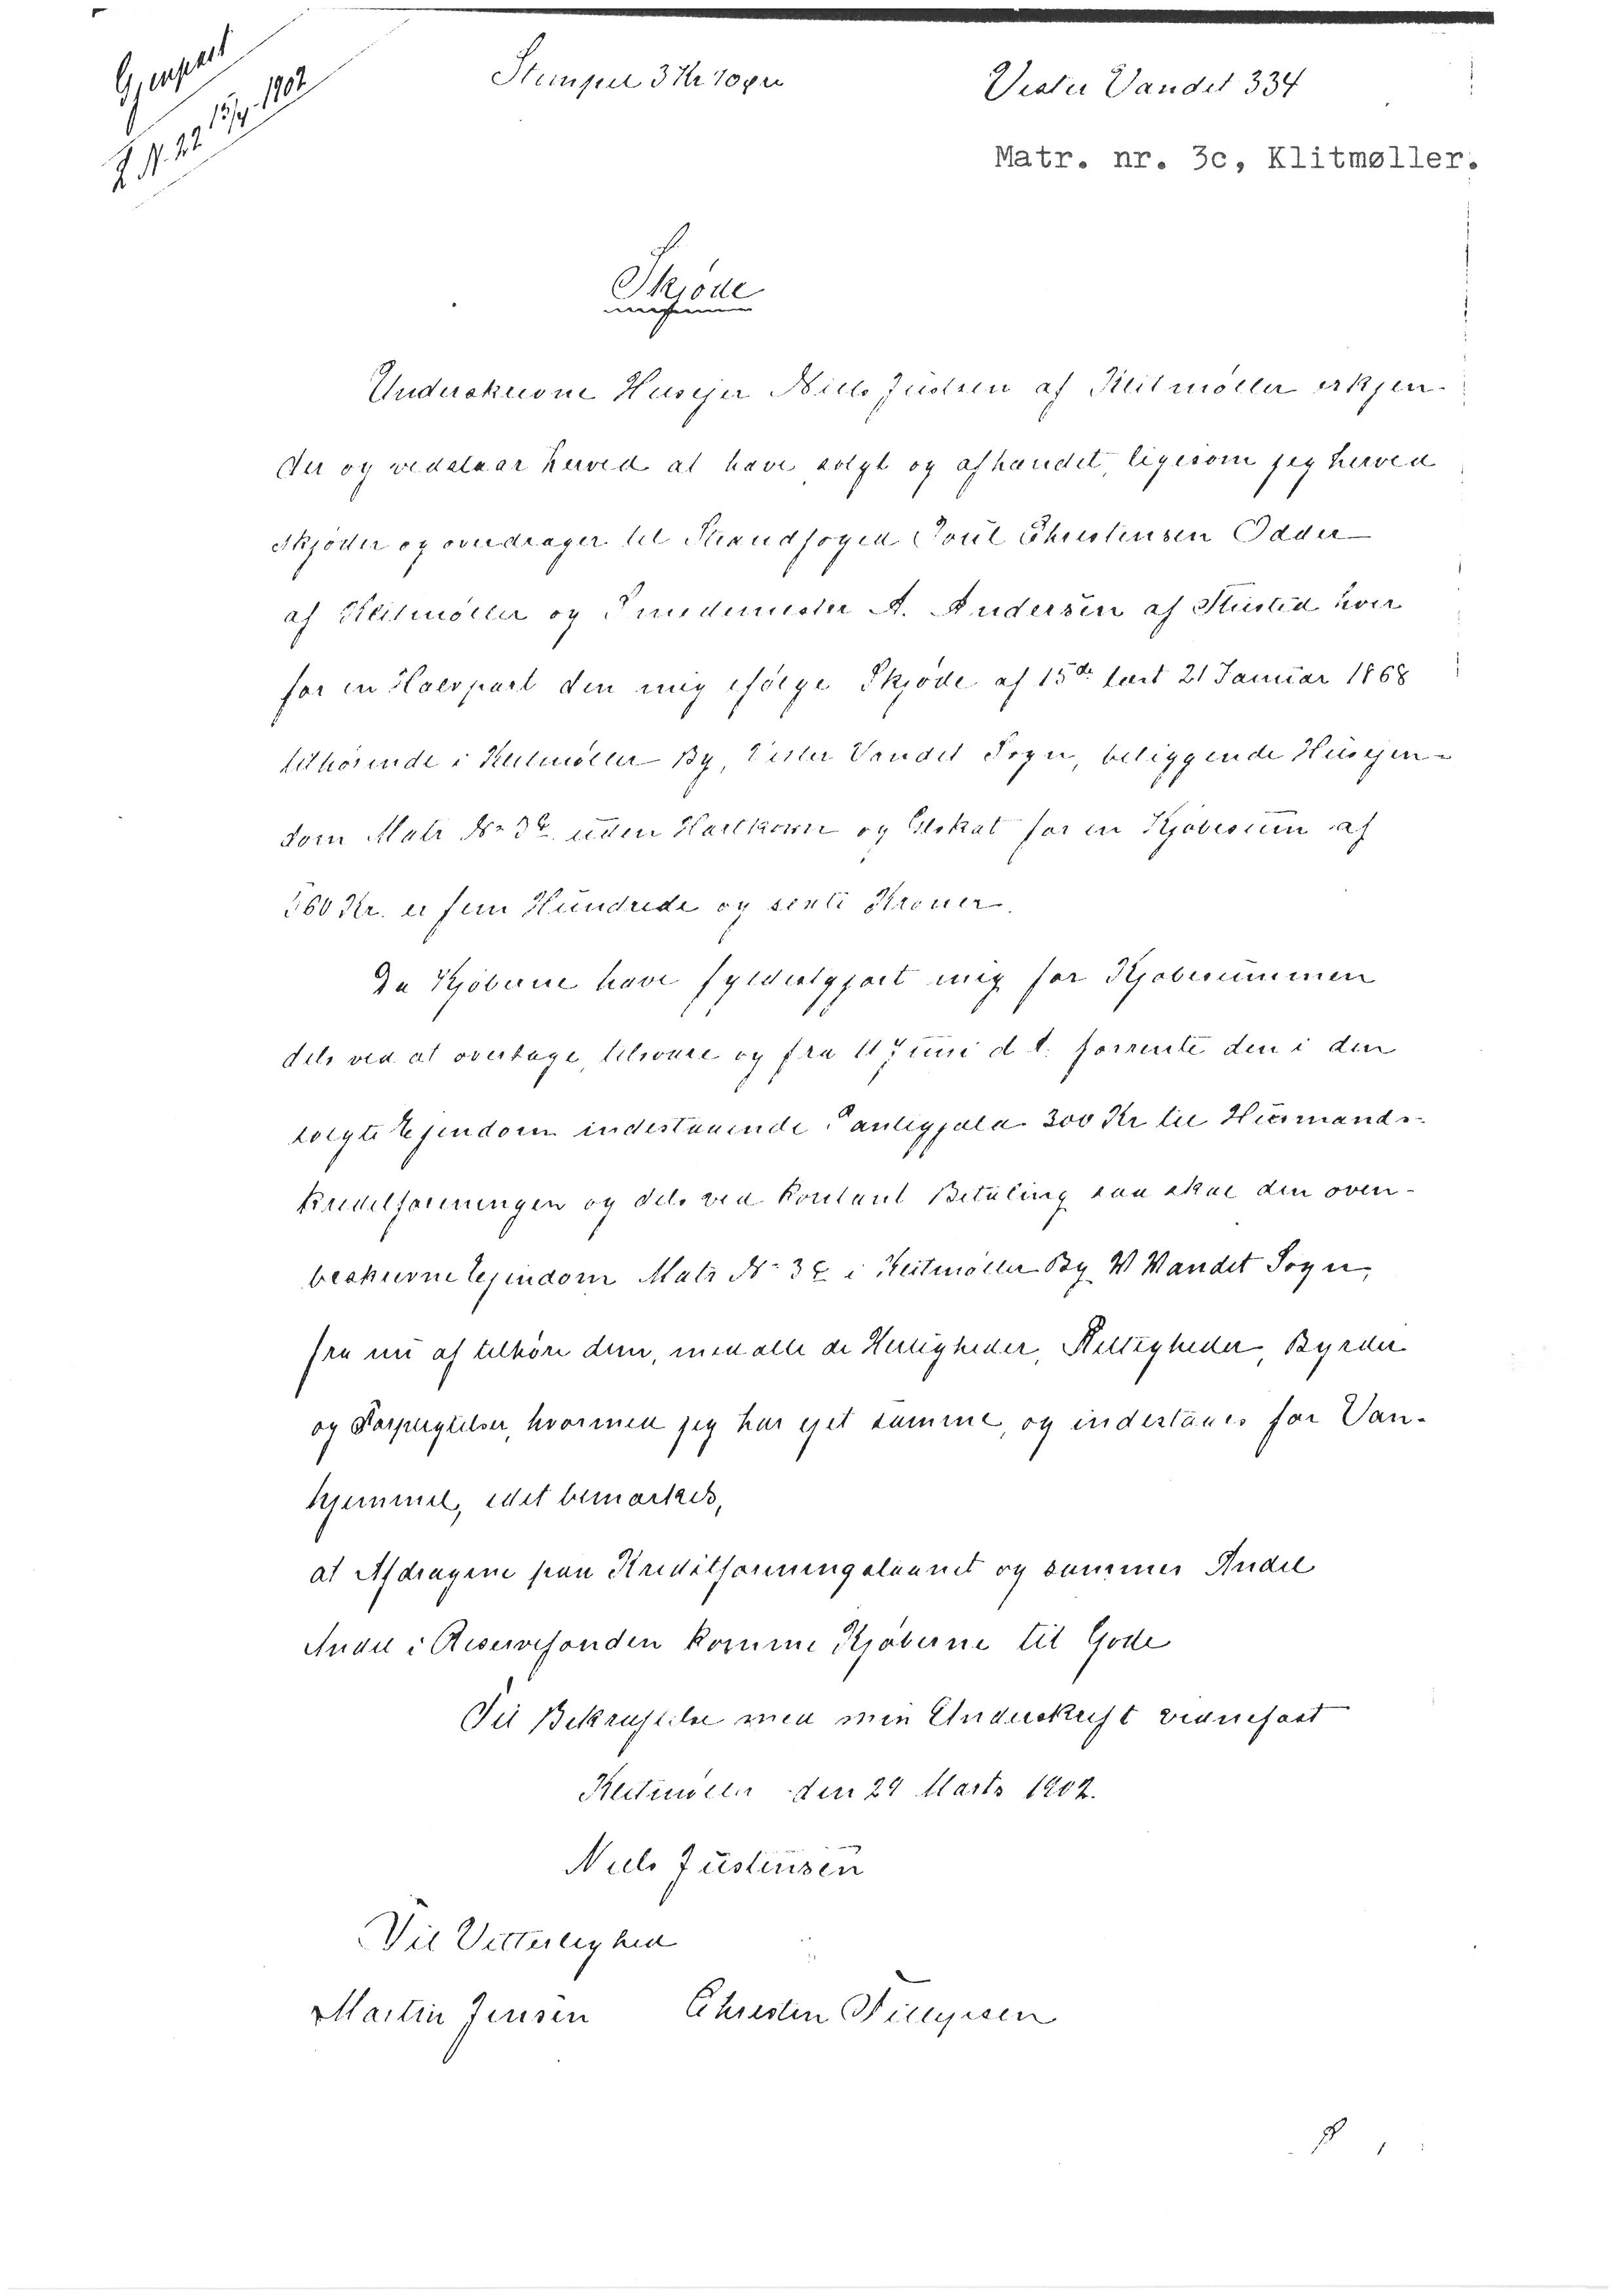 Gjenpart
L. N. 22 15/4. 1902
Stempel 3 Kr 70 Øre
Vester Vandet 334
Matr. nr. 3c, Klitmøller.
Skjøde
Underskrevne Husejer Niels Justsen af Klitmøller erkjen-
der og vedstaar herved at have solgt og afhændet, ligesom jeg herved
skjøder og overdrager til Strandfoged Poul Christensen Odder
af Klitmøller og Smedemester A. Andersen af Thisted hver
for en Halvpart den mig ifølge Skjøde af 15de læst 21 Januar 1868
tilhørende i Klitmøller By, Vester Vandet Sogn, beliggende Husejen-
dom Matr No 3c uden Hartkorn og Glskat for en Kjøbesum af
560 Kr. er fem Hundrede og seksti Kroner.
Da Kjøberne have fyldestgjort mig for Kjøbesummen
dels ved at overtage, tilsvare og fra 11 Juni d. A. forrente den i den
solgte Ejendom indestaaende Pantegjæld 300 Kr til Husmands-
kreditforeningen og dels ved kontant Betaling saa skal den oven-
beskrevne Ejendom Matr No 3c i Klitmøller By V Vandet Sogn,
fra nu af tilhøre dem, med alle de Herligheder, Rettigheder, Byrder
og Forpligtelser, hvormed jeg har ejet samme, og indestaaes for Van-
hjemmel, idet bemærkes,
at Afdragene paa Kreditforeningslaanet og sammes Andel
Andel i Reservefonden komme Kjøberne til Gode
Til Bekræftelse med min Underskrift vidnefast
Klitmøller den 29 Marts 1902.
Niels Justensen
Til Vitterlighed
Martin Jensen Christen